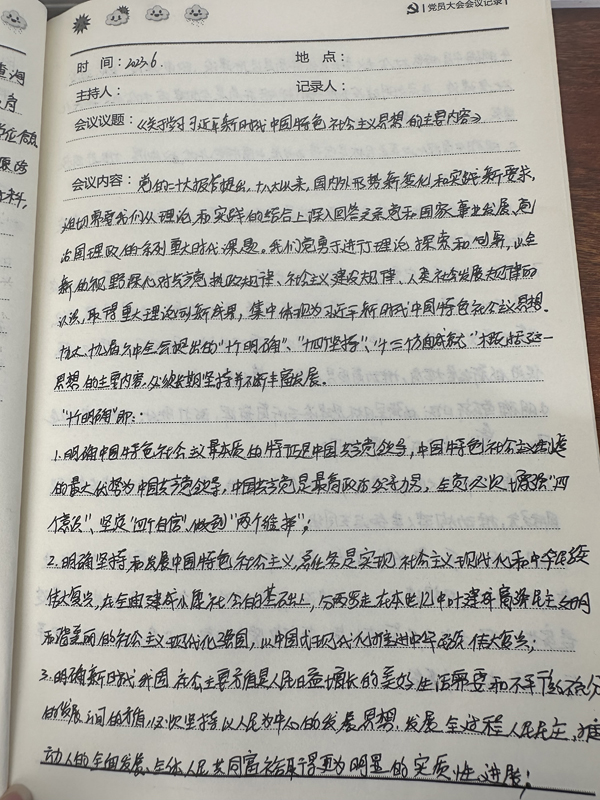 党员大会会议记录
查询
时 间：2023.6. 地 点：
主持人： 记录人：
会议议题：《关于学习习近平新时代中国特色社会主义思想的主要内容》
会议内容：党的二十大报告提出，十八大以来，国内外形势新变化和实践新要求，
迫切需要我们从理论和实践的结合上深入回答关系党和国家事业发展、党
治国理政的系列重大时代课题。我们党勇于进行理论探索和创新，以全
新的视野深化对共产党执政规律、社会主义建设规律、人类社会发展规律的
认识，取得重大理论创新成果，集中体现为习近平新时代中国特色社会主义思想。
十九大、十九届六中全会提出的"十个明确"、"十四个坚持"、"十三个方面成就"概括了这一
思想的主要内容，必须长期坚持并不断丰富发展。
"十个明确"即：
1.明确中国特色社会主义最本质的特征是中国共产党领导，中国特色社会主义制度
的最大优势为中国共产党领导，中国共产党是最高政治领导力量，全党必须增强"四
个意识"、坚定"四个自信"、做到"两个维护"；
2.明确坚持和发展中国特色社会主义，总任务是实现社会主义现代化和中华民族
伟大复兴，在全面建成小康社会的基础上，分两步走在本世纪中叶建成富强民主文明
和谐美丽的社会主义现代化强国，以中国式现代化推进中华民族伟大复兴；
3.明确新时代我国社会主要矛盾是人民日益增长的美好生活需要和不平衡不充分
的发展之间的矛盾，必须坚持以人民为中心的发展思想，发展全过程人民民主，推
动人的全面发展、全体人民共同富裕取得更为明显的实质性进展；